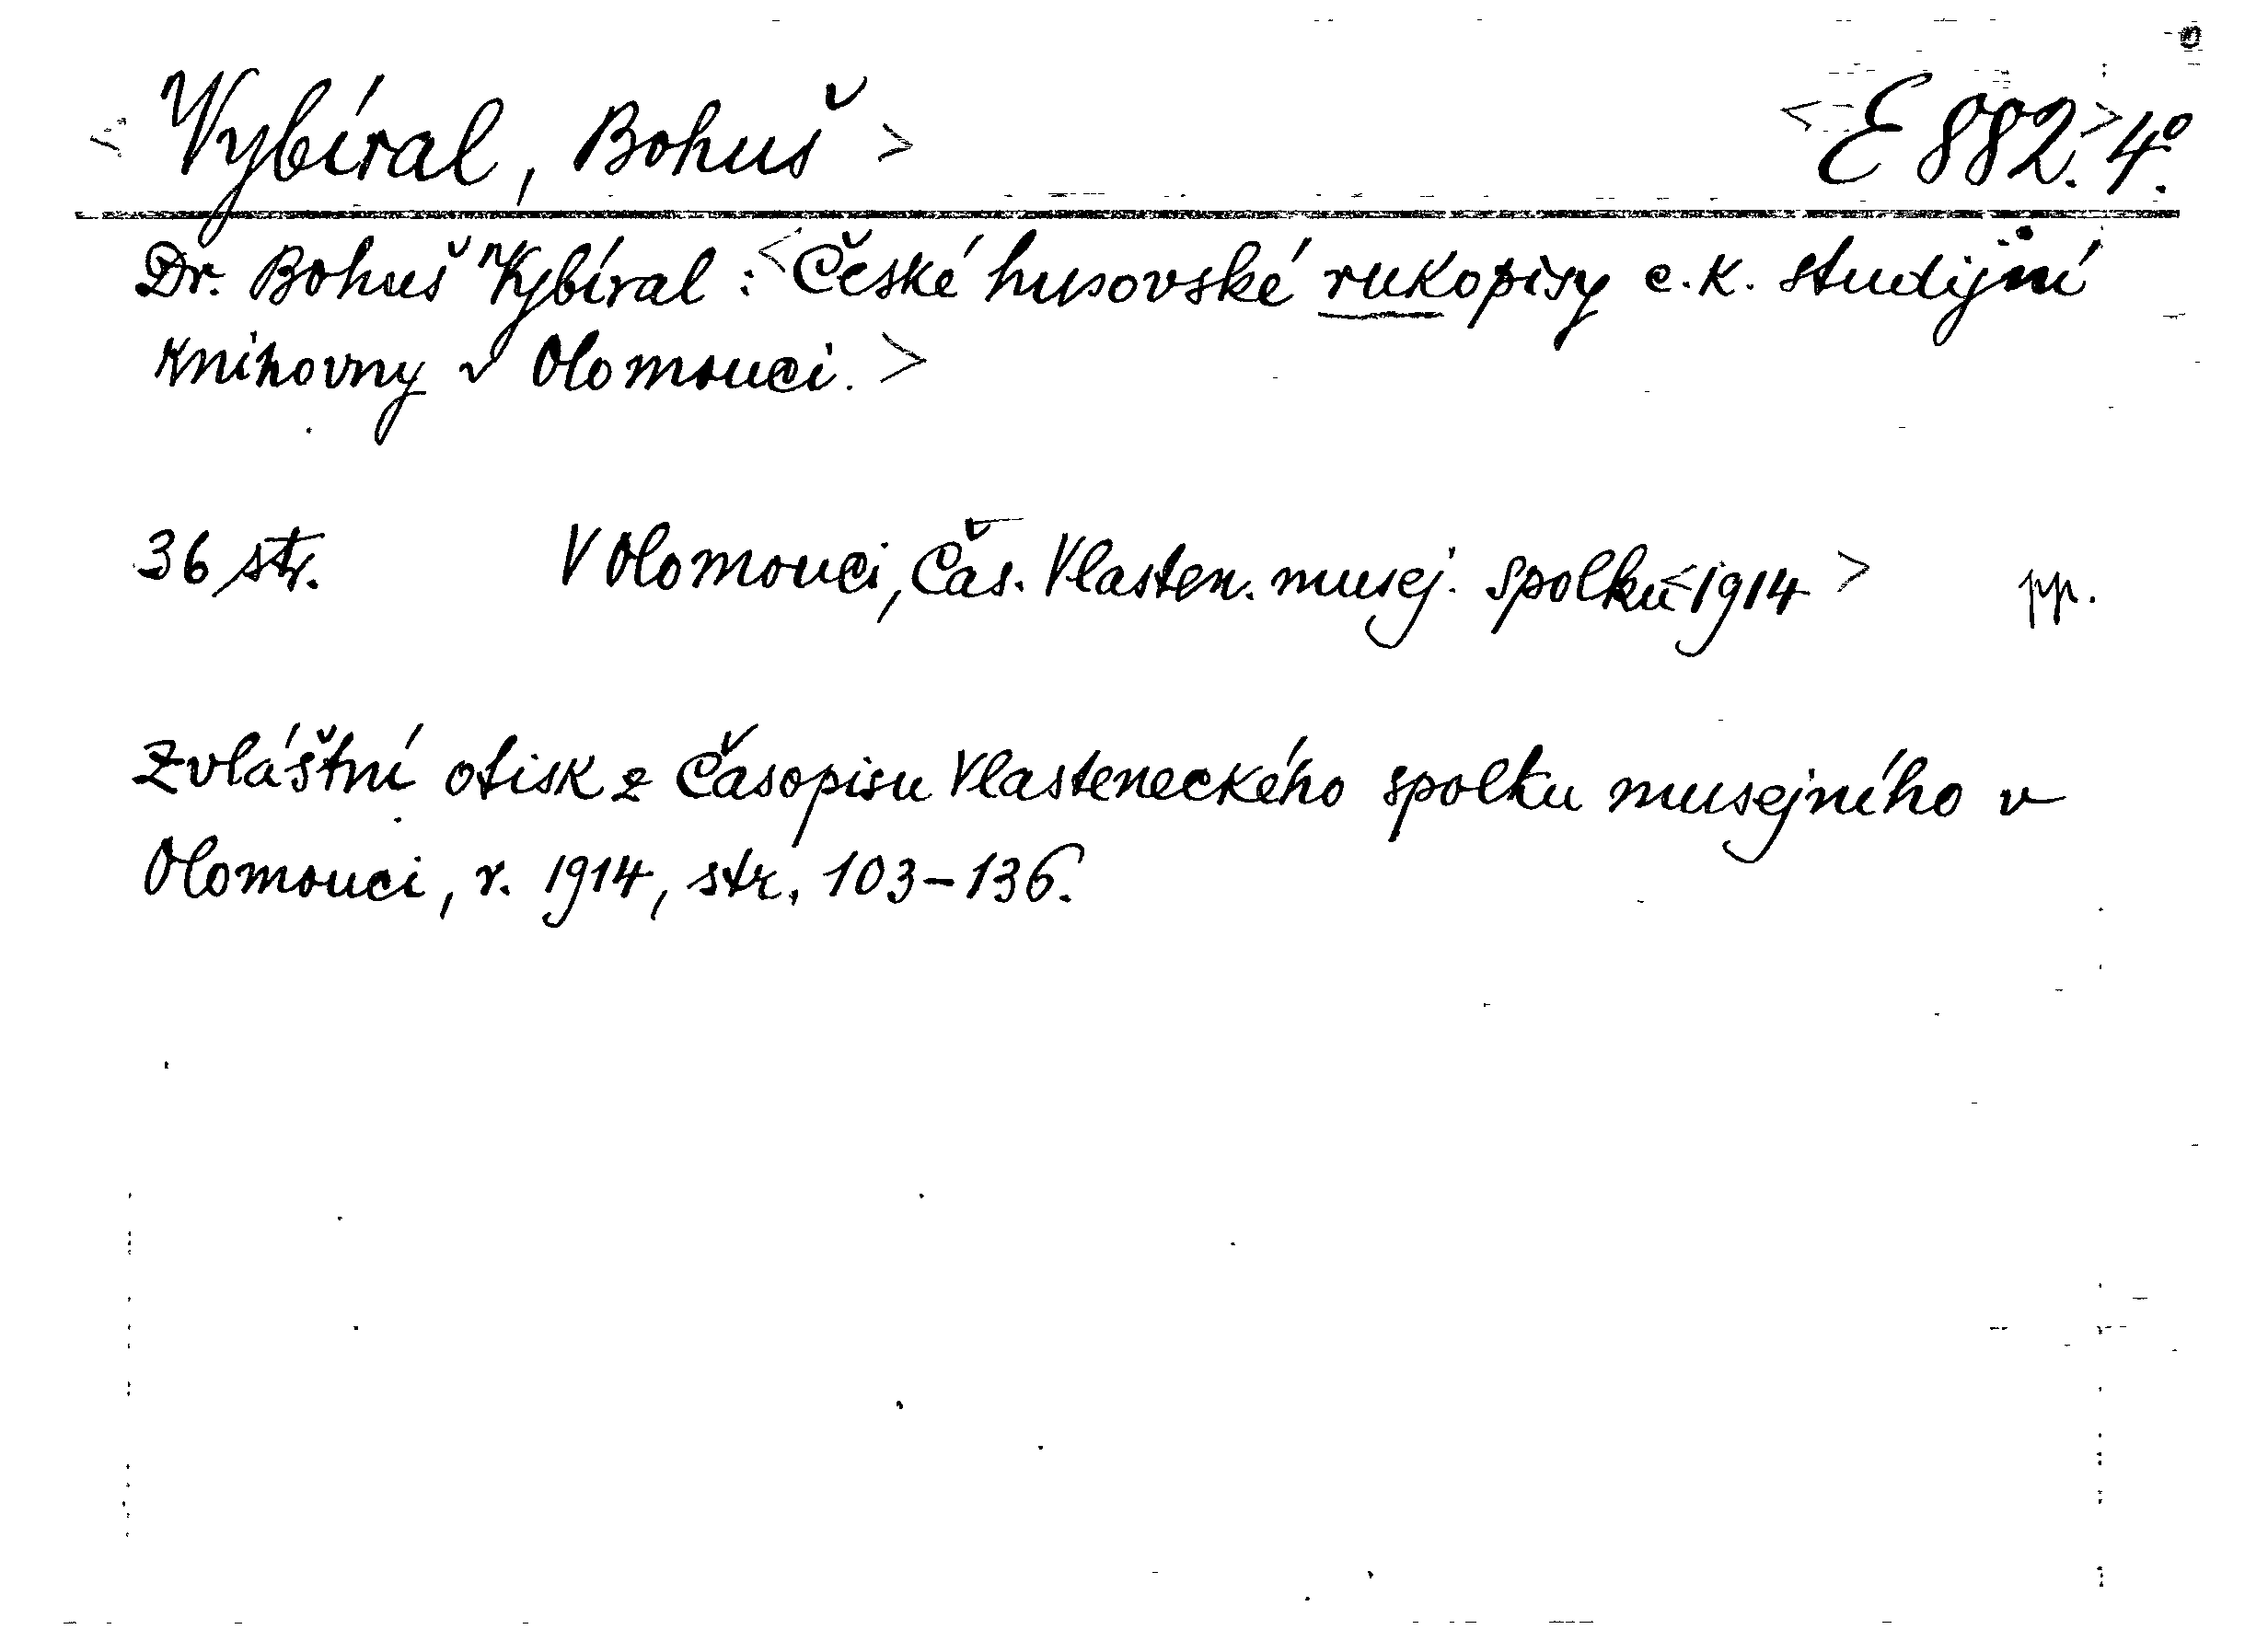 < Vybíral, Bohuš > < E 882. > 4°.
Dr. Bohuš Vybíral : < České husovské rukopisy c. k. studijní
knihovny v Olomouci. >
36 str. V Olomouci, Čas. Vlasten. musej. spolku < 1914 > pp.
Zvláštní otisk z Časopisu Vlasteneckého spolku musejního v
Olomouci, r. 1914, str. 103-136.